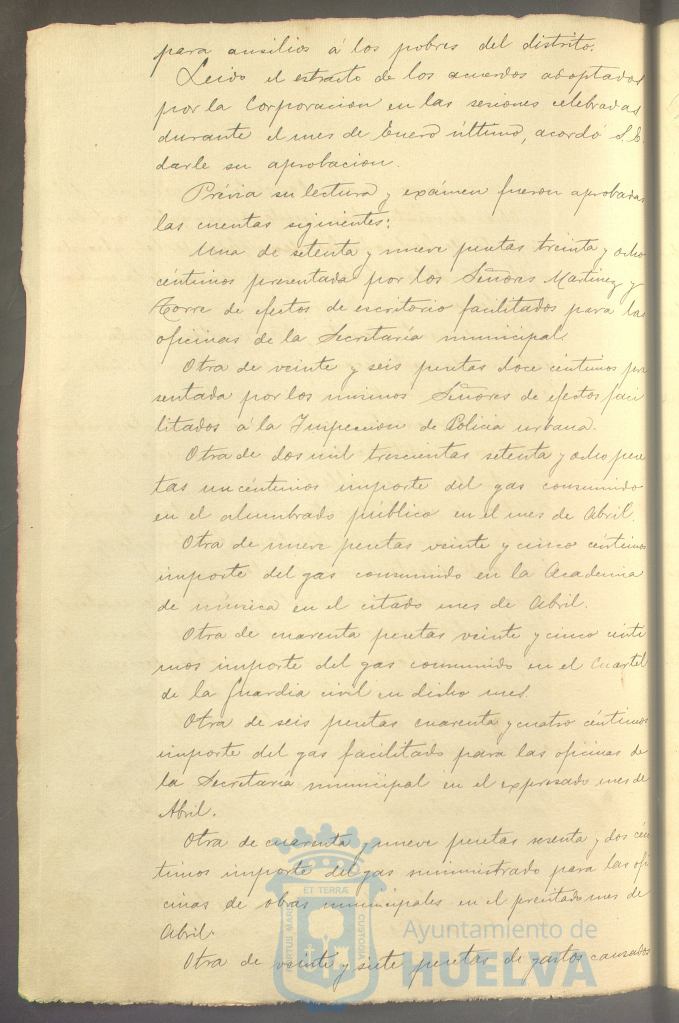 para ausilios á los pobres del distrito.
Leido el estracto de los acuerdos adoptados
por la Corporacion en las sesiones celebradas
durante el mes de Enero último, acordó S. E.
darle su aprobacion.
Prévia su lectura y exámen fueron aprobadas
las cuentas siguientes:
Una de setenta y nueve pesetas treinta y ocho
céntimos presentada por los Señores Martinez y
Torre de efectos de escritorio facilitados para las
oficinas de la Secretaría municipal.
Otra de veinte y seis pesetas doce céntimos pre
sentada por los mismos Señores de efectos faci
litados á la Inspeccion de Policia urbana.
Otra de dos mil trescientas setenta y ocho pese
tas un céntimos importe del gas consumido
en el alumbrado público en el mes de Abril.
Otra de nueve pesetas veinte y cinco céntimos
importe del gas consumido en la Academia
de música en el citado mes de Abril.
Otra de cuarenta pesetas veinte y cinco cénti
mos importe del gas consumido en el Cuartel
de la Guardia civil en dicho mes.
Otra de seis pesetas cuarenta y cuatro céntimos
importe del gas facilitado para las oficinas de
la Secretaría municipal en el expresado mes de
Abril.
Otra de cuarenta y nueve pesetas sesenta y dos cén
timos importe del gas suministrado para las ofi
cinas de obras municipales en el precitado mes de
Abril.
Otra de veinte y siete pesetas de gastos causados
ET TERRÆ
CUSTODIA
Ayuntamiento de
HUELVA